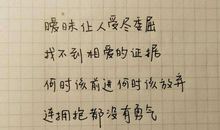 暧昧让人受尽委屈
我不到相爱的证据
何时该前进何时该放弃
连拥抱都没有勇气